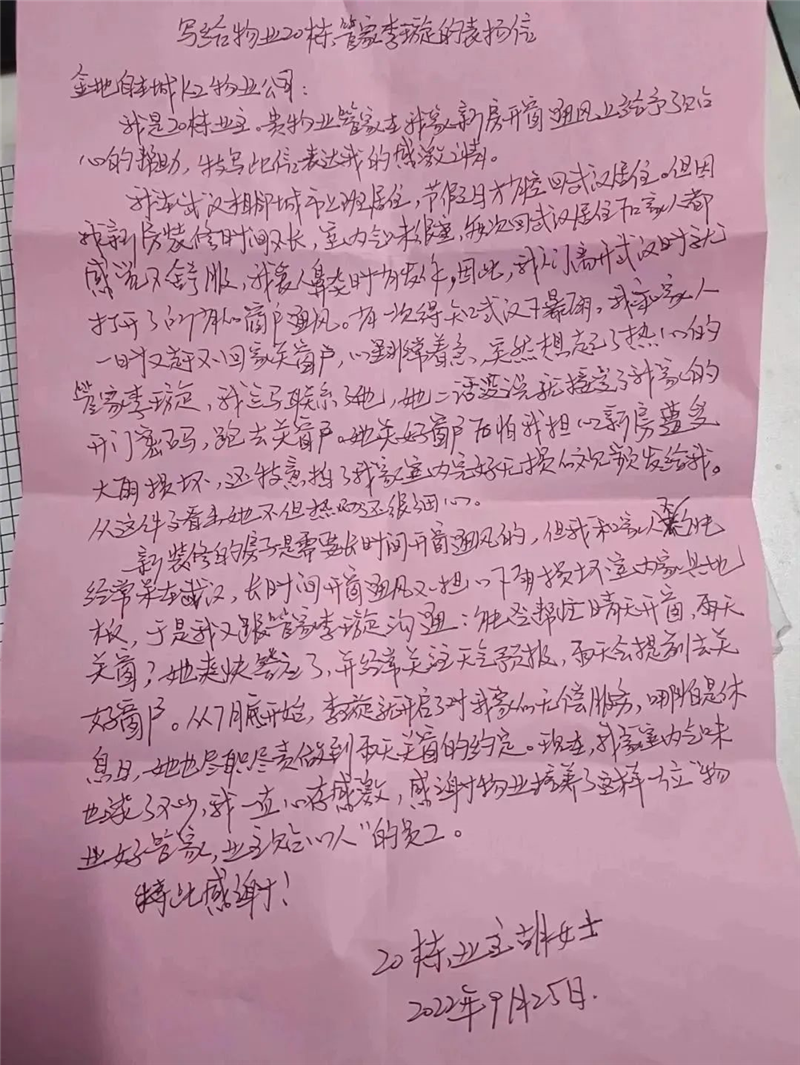 写给物业20栋管家李璇的表扬信
金地自在城K2物业公司:
我是20栋业主。贵物业管家在我家新房开窗通风上给予了贴
心的帮助，特写此信表达我的感激之情。
我在武汉相邻城市上班居住，节假日才能回武汉居住。但因
我新房装修时间不长，室内气味很重，每次回武汉居住后家人都
感觉不舒服，我家人鼻炎时有发作，因此，我们离开武汉时就
打开了所有的窗户通风。有一次得知武汉下暴雨，我和家人
一时又赶不回家关窗户，心里非常着急，突然想起了热心的
管家李璇，我立马联系了她，她二话没说就接受了我家的
开门密码，跑去关窗户。她关好窗户后怕我担心新房遭受
大雨损坏，还特意拍了我家室内完好无损的视频发给我。
从这件事看出她不但热心还很细心。
新装修的房子是需要长时间开窗通风的，但我和家人不能
经常呆在武汉，长时间开窗通风又担心下雨损坏室内家具地
板，于是我又跟管家李璇沟通：能否帮忙晴天开窗，雨天
关窗？她爽快答应了，并经常关注天气预报，雨天会提前去关
好窗户。从7月底开始，李璇就开启了对我家的无偿服务，哪怕是休
息日，她也尽职尽责做到雨天关窗的约定。现在，我家室内气味
也减了不少，我一直心存感激，感谢物业培养了这样一位“物
业好管家，业主贴心人”的员工。
特此感谢！
20栋业主胡女士
2022年9月25日.